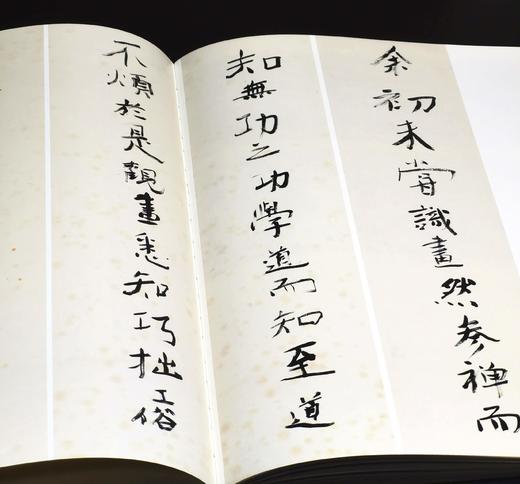 余初未嘗識畫然參禪而
知無功之功學道而知至道
不煩於是觀畫悉知巧拙工俗